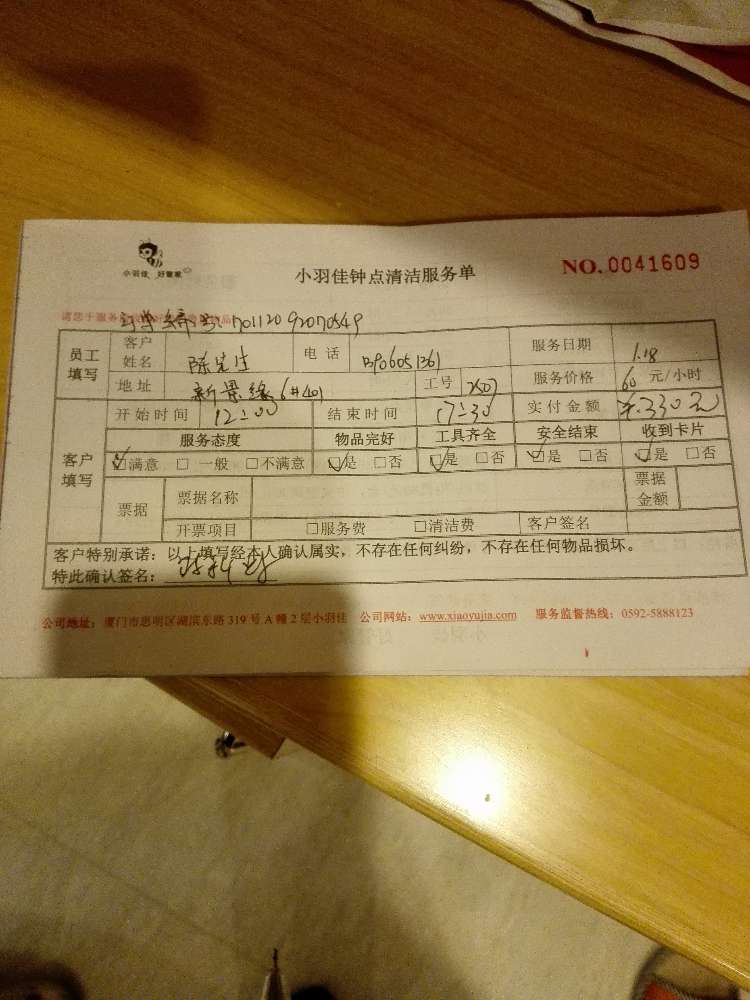 小羽佳 好管家
小羽佳钟点清洁服务单
NO.0041609
订单编号:70112092070549
员工填写 客户姓名 陈先生 电话 服务日期 1.18
地址 新景缘6#401 工号 服务价格 60 元/小时
客户填写 开始时间 12:00 结束时间 17:30 实付金额 ¥.330元
服务态度 物品完好 工具齐全 安全结束 收到卡片
☑满意 □一般 □不满意 ☑是 □否 ☑是 □否 ☑是 □否 ☑是 □否
票据 票据名称 票据金额
开票项目 □服务费 □清洁费 客户签名
客户特别承诺:以上填写经本人确认属实,不存在任何纠纷,不存在任何物品损坏。
特此确认签名:
公司地址:厦门市思明区湖滨东路319号A幢2层小羽佳 公司网站:www.xiaoyujia.com 服务监督热线:0592-5888123